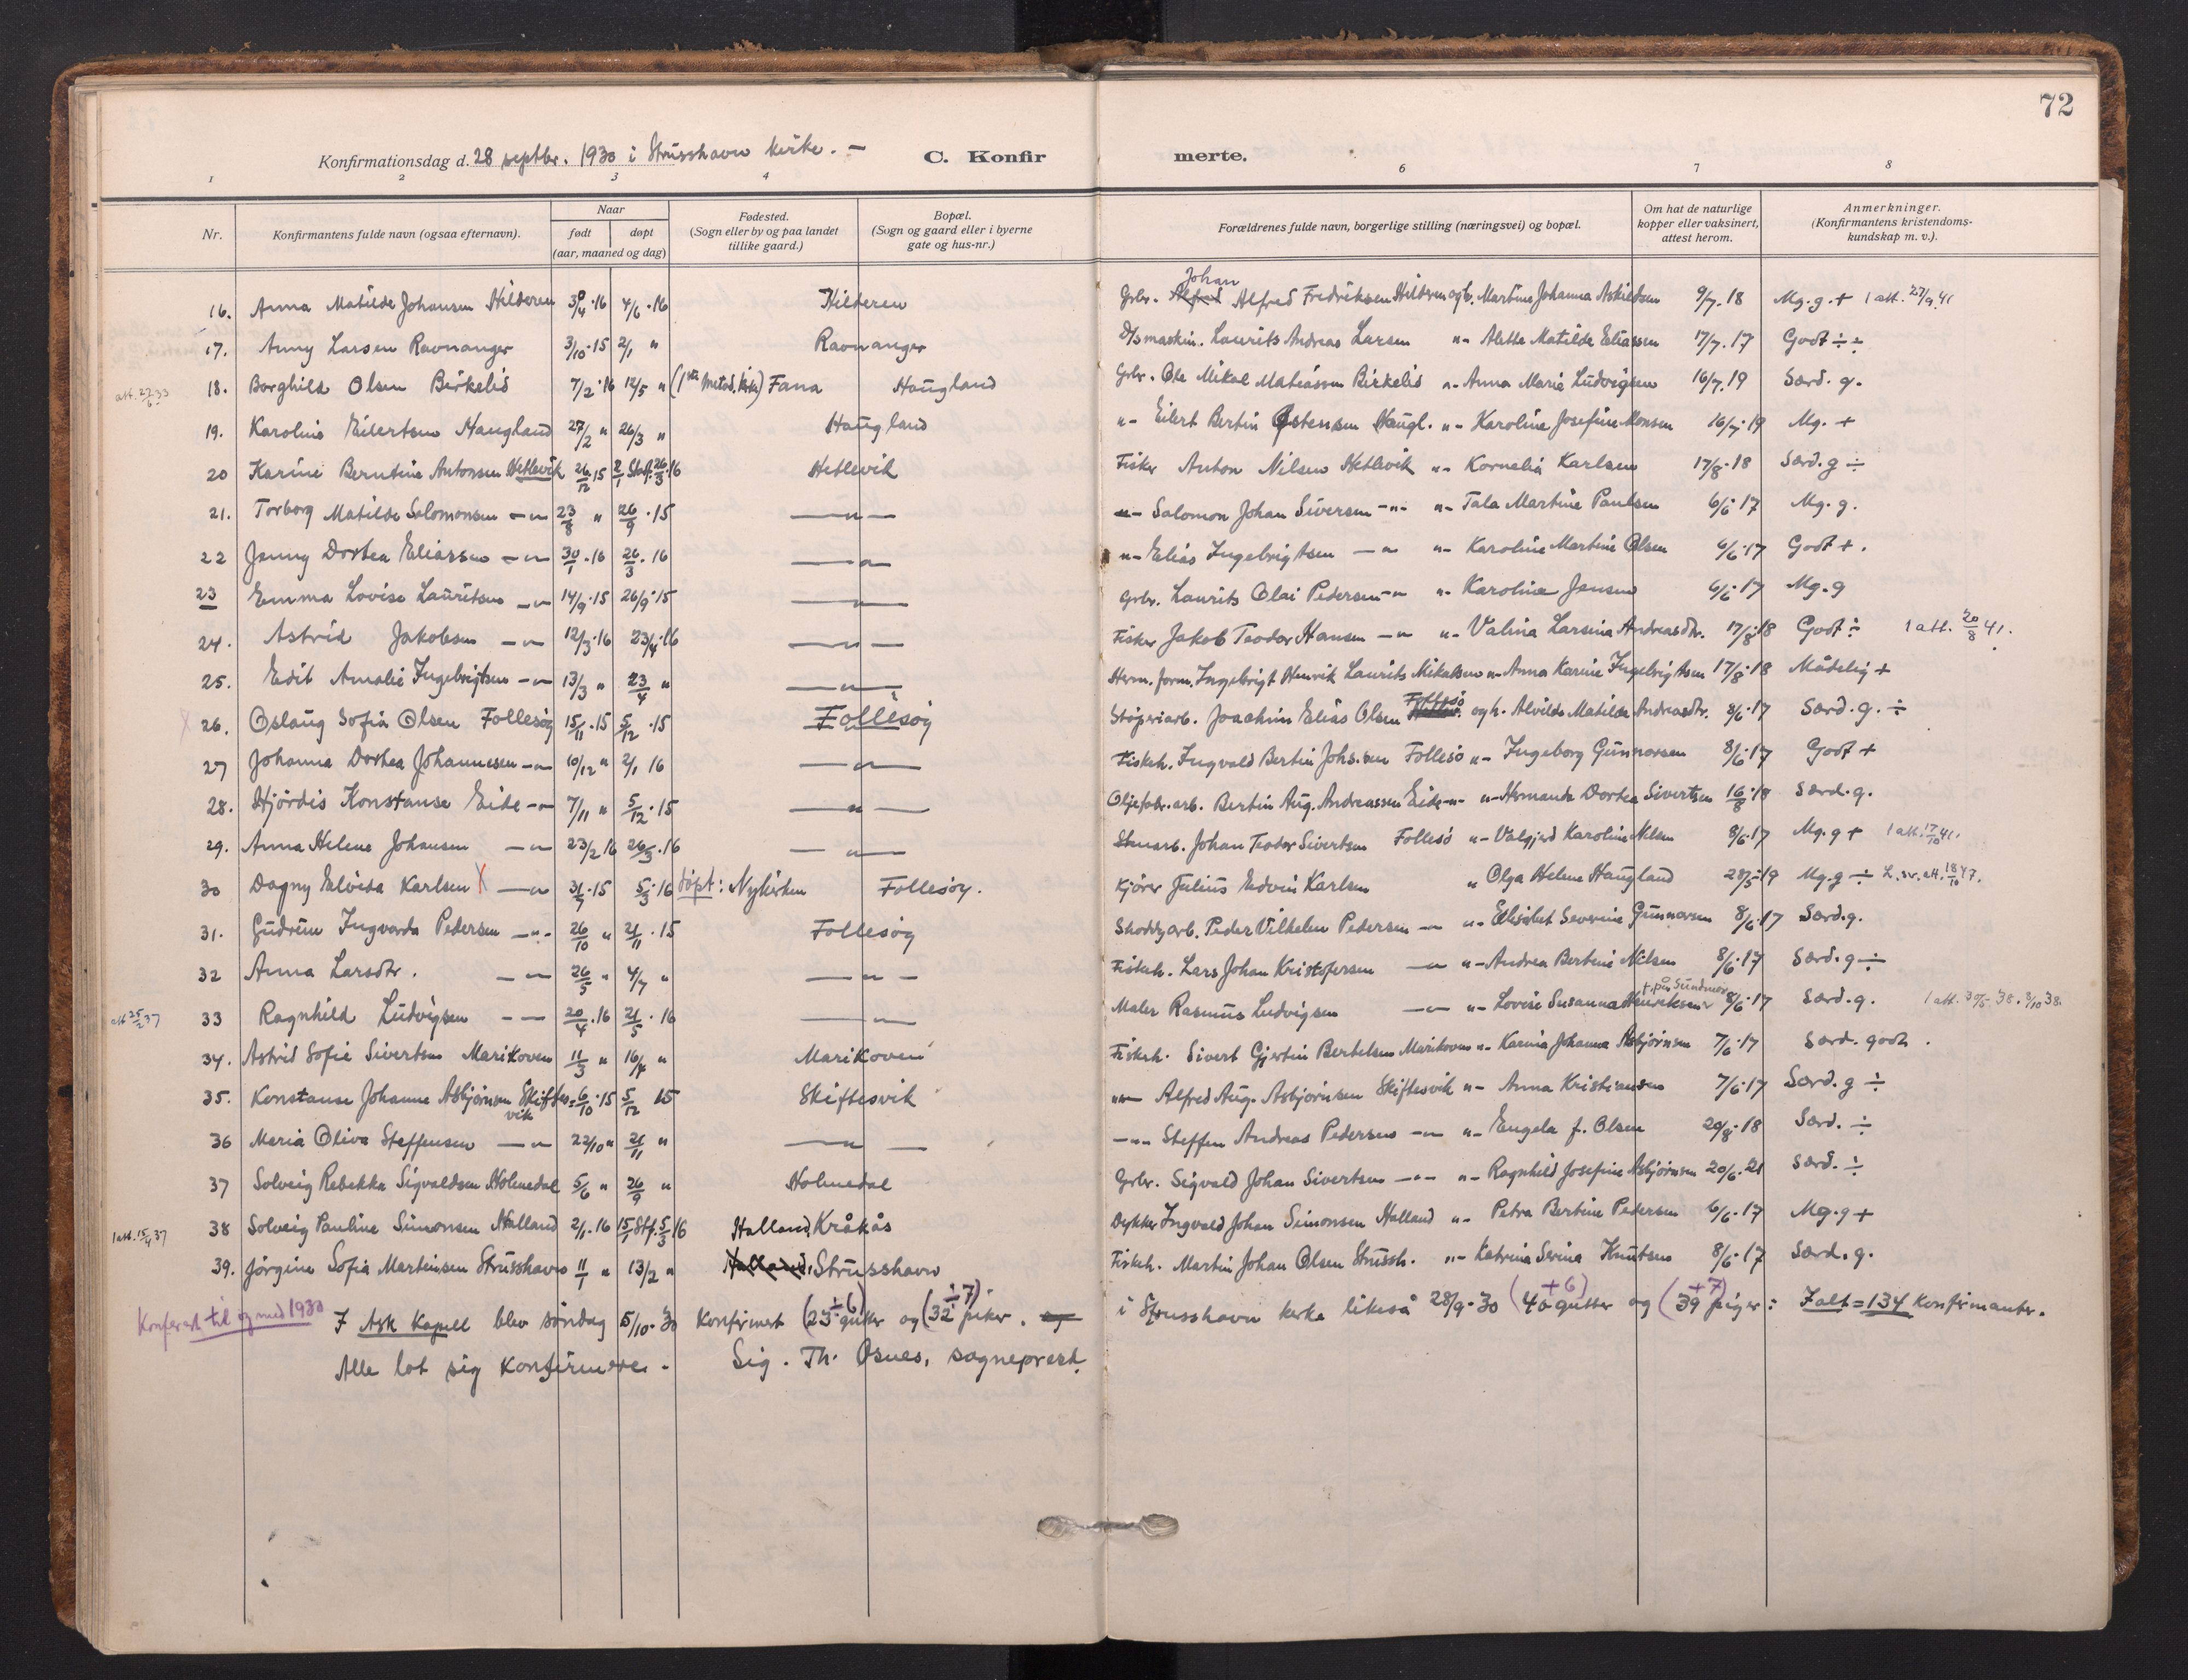 72
Konfirmationsdag d. 28 septbr. 1930 i Strusshavn kirke. - C. Konfir merte.
1 2 3 4 6 7 8
Nr. Konfirmantens fulde navn (ogsaa efternavn). Naar født døpt (aar, maaned og dag) Fødested. (Sogn eller by og paa landet tillike gaard.) Bopæl. (Sogn og gaard eller i byerne gate og hus-nr.) Forældrenes fulde navn, borgerlige stilling (næringsvei) og bopæl. Om hat de naturlige kopper eller vaksinert, attest herom. Anmerkninger. (Konfirmantens kristendomskundskap m. v.).
16. Anna Matilde Johansen Hilderen 30/4.16 4/6.16 Hilderen Grbr. Johan Alfred Fredriksen Hilderen og h. Martine Johanna Askildsen 9/7.18 Mg.g.+ 1 att. 27/9.41
17. Anny Larsen Ravnanger 3/10.15 2/1 " Ravnanger D/smaskin. Laurits Andreas Larsen "- Alette Matilde Eliassen 17/7.17 Godt ÷
att. 22/6.33 18. Borghild Olsen Birkelid 7/2.16 12/5 " (1ste Metod. kirke) Fana Haugland Grbr. Ole Mikal Matiassen Birkelid "- Anna Marie Ludvigsen 16/7.19 Særd. g.
19. Karoline Eilertsen Haugland 27/2 " 26/3 " Haugland "- Eilert Bertin Østensen Haugl. "- Karoline Josefine Monsen 16/7.19 Mg. +
20 Karine Berntine Antonsen Hetlevik 26/12.15 2/1 Stf. 26/3.16 Hetlevik Fisker Anton Nilsen Hetlevik "- Kornelia Karlsen 17/8.18 Særd. g ÷
21. Torborg Matilde Salomonsen -"- 23/8 " 26/9.15 -"- "- Salomon Johan Siversen -"- "- Tala Martine Paulsen 6/6.17 Mg. g.
22 Jenny Dortea Eliassen -"- 30/1.16 26/3.16 -"- "- Elias Ingebrigtsen -"- "- Karoline Martine Olsen 6/6.17 Godt +.
23 Emma Lovise Lauritsen -"- 14/9.15 26/9.15 -"- Grbr. Laurits Olai Pedersen -"- "- Karoline Jensen 6/6.17 Mg. g
24. Astrid Jakobsen -"- 12/3.16 23/4.16 -"- Fisker Jakob Teodor Hansen -"- "- Valina Larsina Andreasdtr. 17/8.18 Godt ÷ 1 att. 20/8 41.
25. Edit Amalie Ingebrigtsen -"- 13/3 " 23/4 " -"- Herm. form. Ingebrigt Henrik Laurits Mikalsen "- Anna Karine Ingebrigtsen 17/8.18 Mådelig +
26. Oslaug Sofia Olsen Follesøy 15/11.15 5/12.15 Follesøy Støperiarb. Joachim Elias Olsen Follesø og h. Alvilde Matilde Andreasdtr. 8/6.17 Særd. g. ÷
27 Johanna Dortea Johannesen -"- 10/12 " 2/1 16 -"- Fiskeh. Ingvald Bertin Johs.sen Follesø "- Ingeborg Gunnarsen 8/6.17 Godt +
28. Hjørdis Konstanse Eide -"- 7/11 " 5/12.15 -"- Oljefabr.arb. Bertin Aug. Andreassen Eide -"- "- Hermande Dortea Sivertsen 16/8.18 Særd. g.
29. Anna Helene Johansen -"- 23/2 16 26/3.16 -"- Stenarb. Johan Teodor Sivertsen Follesø "- Valgjerd Karoline Nilsen 8/6.17 Mg. g + 1 att. 17/10 41.
30 Dagny Elvida Karlsen X -"- 31/7.15 5/3.16 døpt: Nykirken Follesøy. Kjører Julius Edvin Karlsen " Olga Helene Haugland 28/5.19 Mg. g ÷ L. sv. att. 18/10 47.
31. Gudrun Ingvarda Pedersen -"- 26/10 " 21/11.15 Follesøy Shoddyarb. Peder Vilhelm Pedersen -"- "- Elisabet Severine Gunnarsen 8/6.17 Særd. g.
32 Anna Larsdtr. -"- 26/5 " 4/7 " -"- Fiskeh. Lars Johan Kristofersen -"- "- Andrea Bertine Nilsen 8/6.17 Særd. g ÷
att 25/2 37 33 Ragnhild Ludvigsen -"- 20/4.16 21/5.16 -"- Maler Rasmus Ludvigsen -"- "- Lovise Susanna Henriksen f. på Sundmør 8/6.17 Særd. g. 1 att. 30/5 38. 3/10 38.
34. Astrid Sofie Sivertsen Marikoven 11/3 " 16/4 " Marikoven Fiskeh. Sivert Gjertin Bertelsen Marikoven "- Karina Johanna Asbjørnsen 7/6.17 Særd. godt.
35. Konstanse Johanne Asbjørnsen Skiftesvik 6/10.15 5/12 15 Skiftesvik "- Alfred Aug. Asbjørnsen Skiftesvik "- Anna Kristiansen 7/6.17 Særd. g ÷
36 Maria Oliva Steffensen -"- 22/10 " 21/11 " -"- -"- Steffen Andreas Pedersen -"- "- Engela f. Olsen 29/8.18 Særd. ÷
37 Solveig Rebekka Sigvaldsen Holmedal 5/6 " 26/9 " Holmedal Grbr. Sigvald Johan Sivertsen -"- "- Ragnhild Josefine Asbjørnsen 20/6.21 Særd. ÷
1 att. 15/4 37 38 Solveig Pauline Simonsen Halland 2/1.16 15/1 Stf. 5/3 16 Halland, Kråkås Dykker Ingvald Johan Simonsen Halland "- Petra Bertine Pedersen 6/6.17 Mg. g +
39. Jørgine Sofia Martinsen Strusshavn 11/1 " 13/2 " Halland, Strusshavn Fiskeh. Martin Johan Olsen Strussh. "- Katrina Serina Knutsen 8/6.17 Særd. g.
Konferert til og med 1930 I Ask Kapell blev søndag 5/10.30 konfirmert (23 ÷6) gutter og (32 ÷7) piker. og i Strusshavn kirke likeså 28/9.30 (40 +6) gutter og (39 +7) piger: Ialt = 134 konfirmanter.
Alle lot sig konfirmere. - Sig. Th. Osnes, sogneprest.